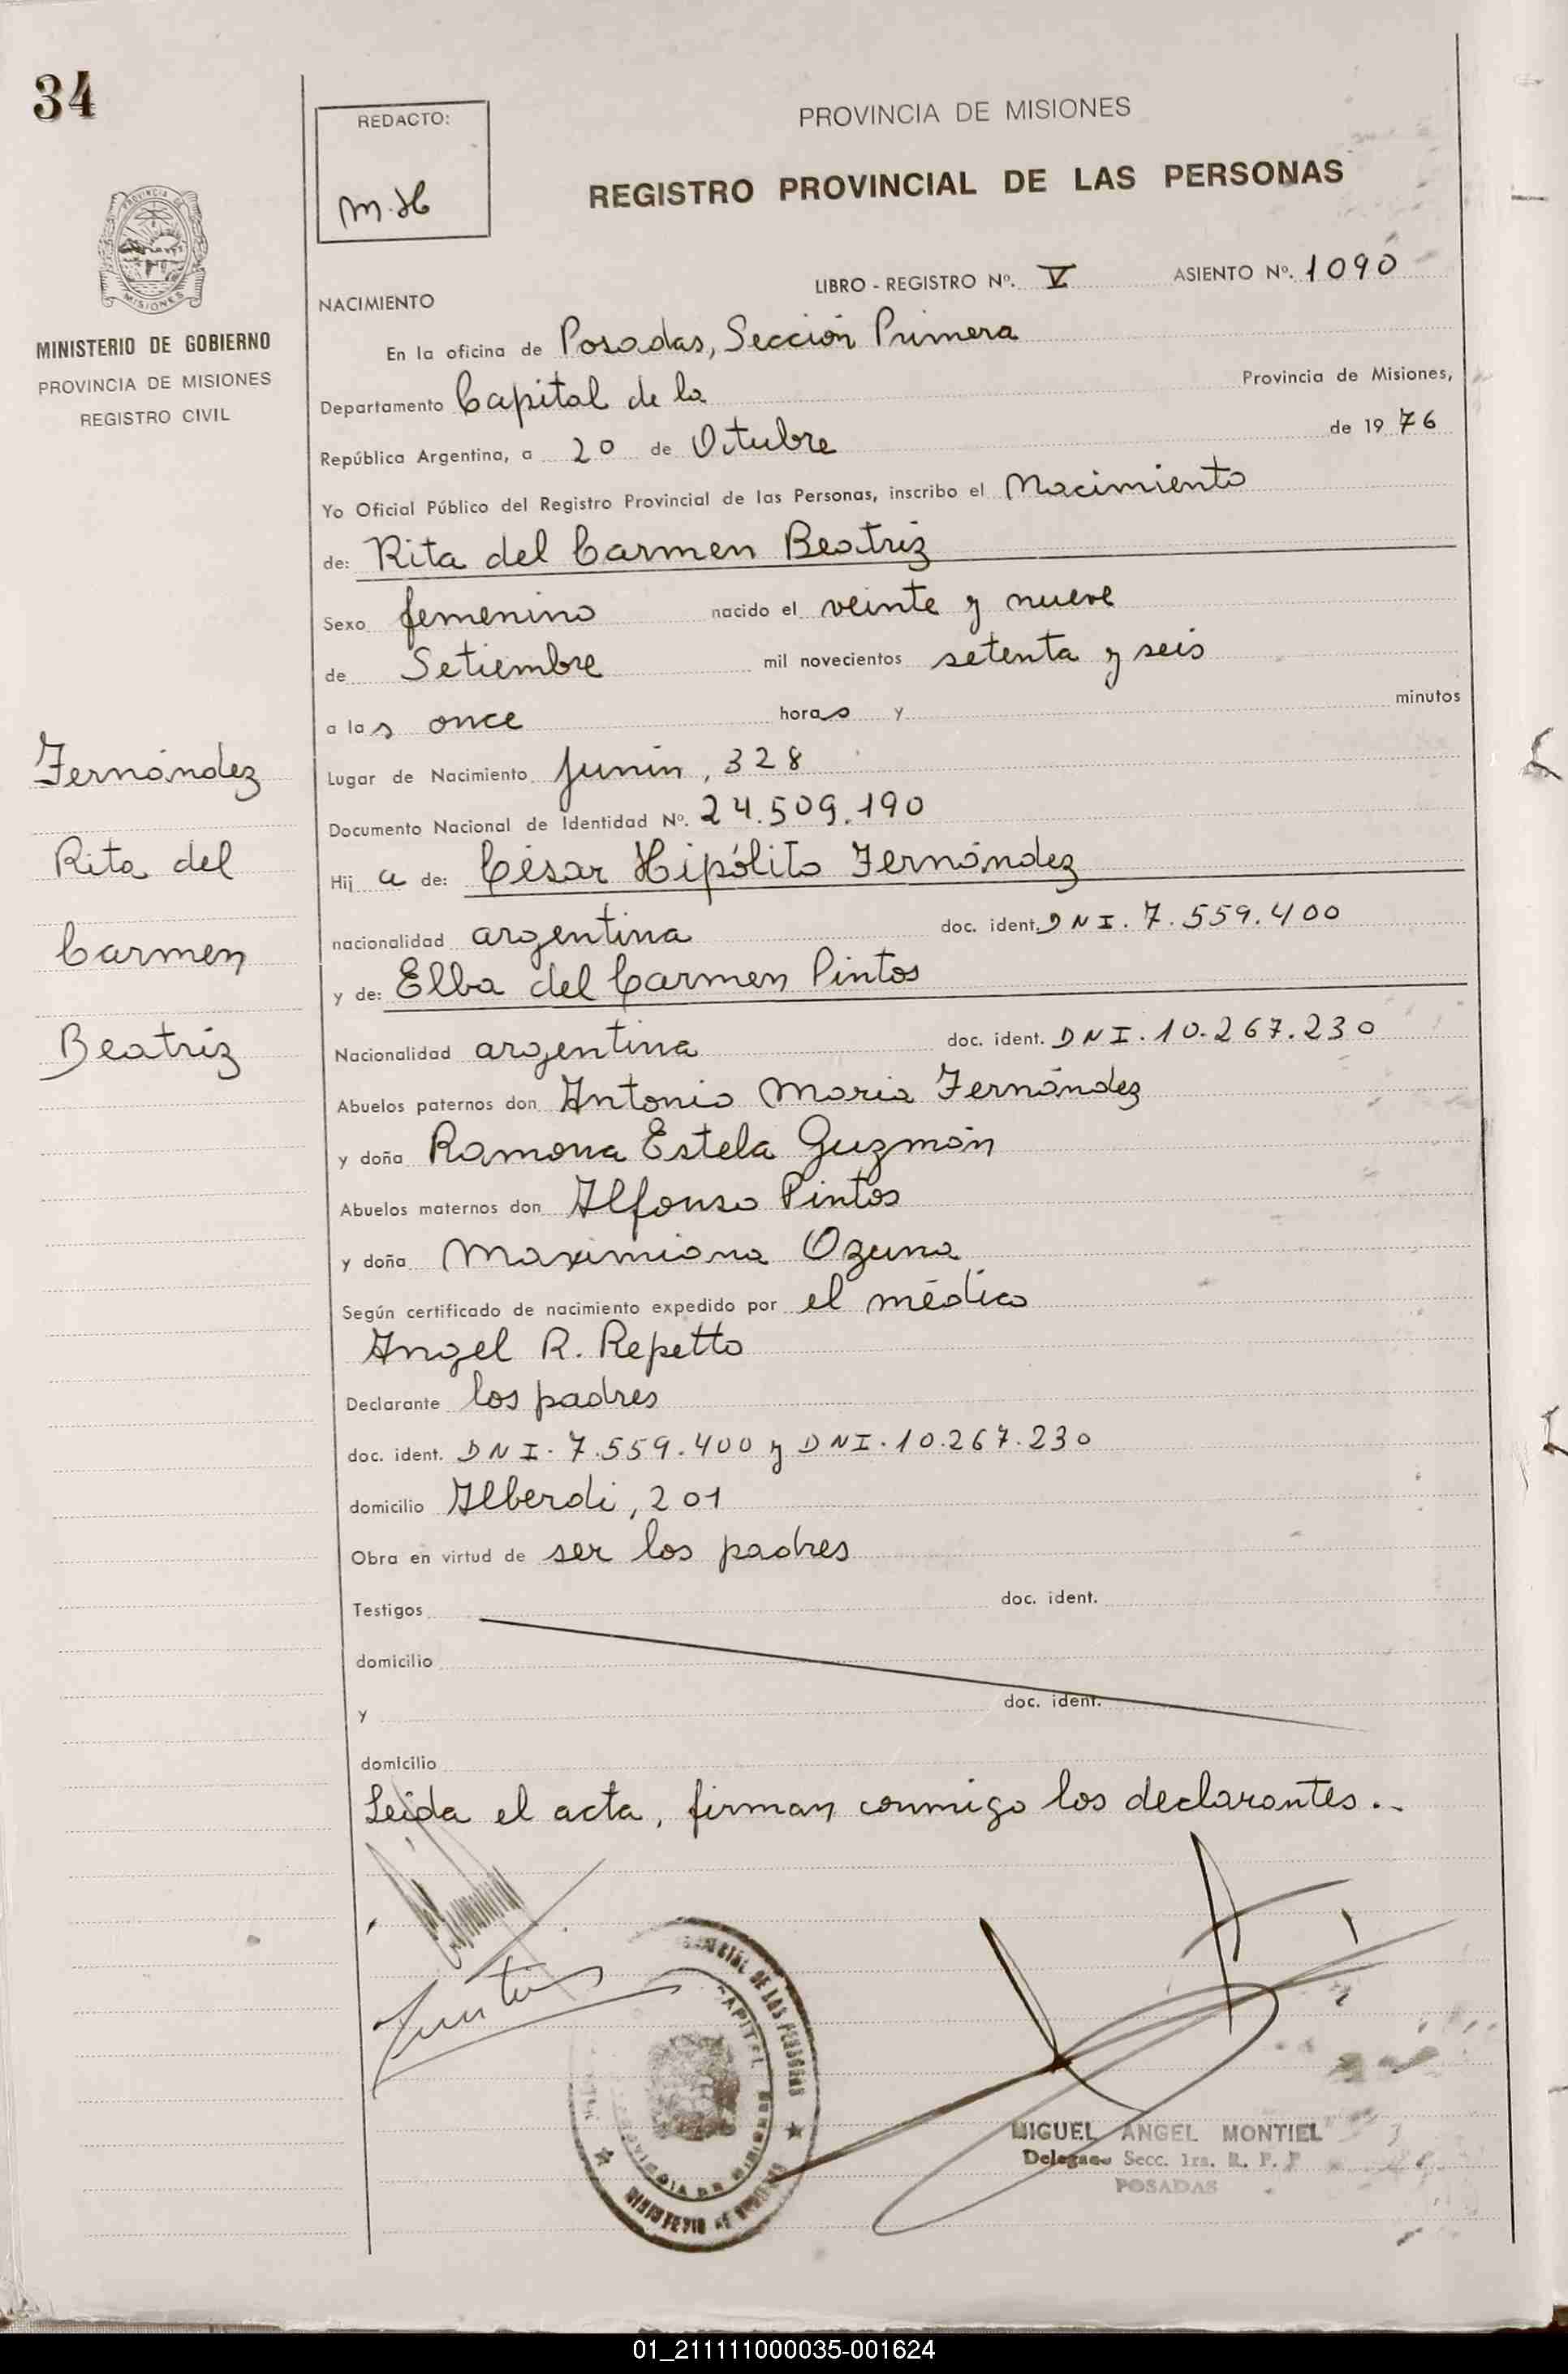 34
REDACTO:
M.H
PROVINCIA DE MISIONES
REGISTRO PROVINCIAL DE LAS PERSONAS
PROVINCIA DE
MISIONES
MINISTERIO DE GOBIERNO
PROVINCIA DE MISIONES
REGISTRO CIVIL
LIBRO - REGISTRO Nº. V ASIENTO Nº. 1090
NACIMIENTO
En la oficina de Posadas, Sección Primera
Departamento Capital de la Provincia de Misiones,
República Argentina, a 20 de Octubre de 19 76
Yo Oficial Público del Registro Provincial de las Personas, inscribo el Nacimiento
de: Rita del Carmen Beatriz
Sexo femenino nacido el veinte y nueve
de Setiembre mil novecientos setenta y seis
a las once horas y minutos
Lugar de Nacimiento Junín, 328
Documento Nacional de Identidad Nº. 24.509.190
Hij a de: César Hipólito Fernández
nacionalidad argentina doc. ident. DNI. 7.559.400
y de: Elba del Carmen Pintos
Nacionalidad argentina doc. ident. DNI. 10.267.230
Abuelos paternos don Antonio Maria Fernández
y doña Ramona Estela Guzmán
Abuelos maternos don Alfonso Pintos
y doña Maximiana Ozuna
Según certificado de nacimiento expedido por el médico
Angel R. Repetto
Declarante los padres
doc. ident. DNI. 7.559.400 y DNI. 10.267.230
domicilio Alberdi, 201
Obra en virtud de ser los padres
Testigos doc. ident.
domicilio
y doc. ident.
domicilio
Leída el acta, firman conmigo los declarantes.-
Fernández
Rita del
Carmen
Beatriz
DE LAS PERSONAS
CAPITAL
PROVINCIA DE MISIONES
MINISTERIO DE GOBIERNO
MIGUEL ANGEL MONTIEL
Delegado Secc. 1ra. R. P. P
POSADAS
01_211111000035-001624